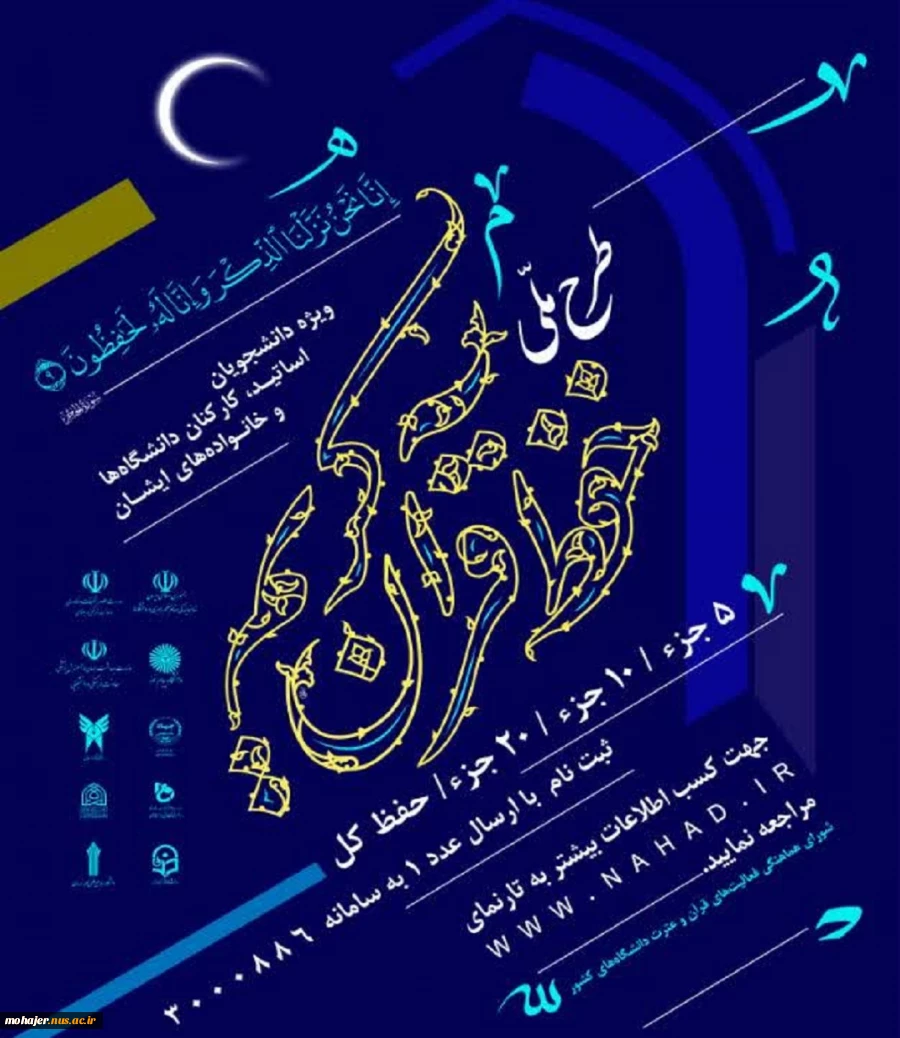 إِنَّا نَحْنُ نَزَّلْنَا الذِّكْرَ وَإِنَّا لَهُ لَحَافِظُونَ ٩
ویژه دانشجویان
اساتید، کارکنان دانشگاه‌ها
و خانواده‌های ایشان
طرح ملّی
حفظ قرآن کریم
۵ جزء / ۱۰ جزء / ۲۰ جزء / حفظ کل
ثبت نام با ارسال عدد ۱ به سامانه ۳۰۰۰۰۸۸۶
جهت کسب اطلاعات بیشتر به تارنمای
WWW.NAHAD.IR
مراجعه نمایید.
شورای هماهنگی فعالیت‌های قرآن و عترت دانشگاه‌های کشور
mohajer.nus.ac.ir